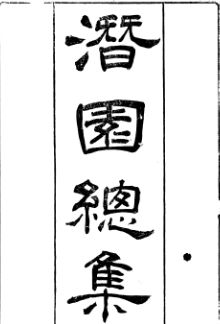 潛園總集